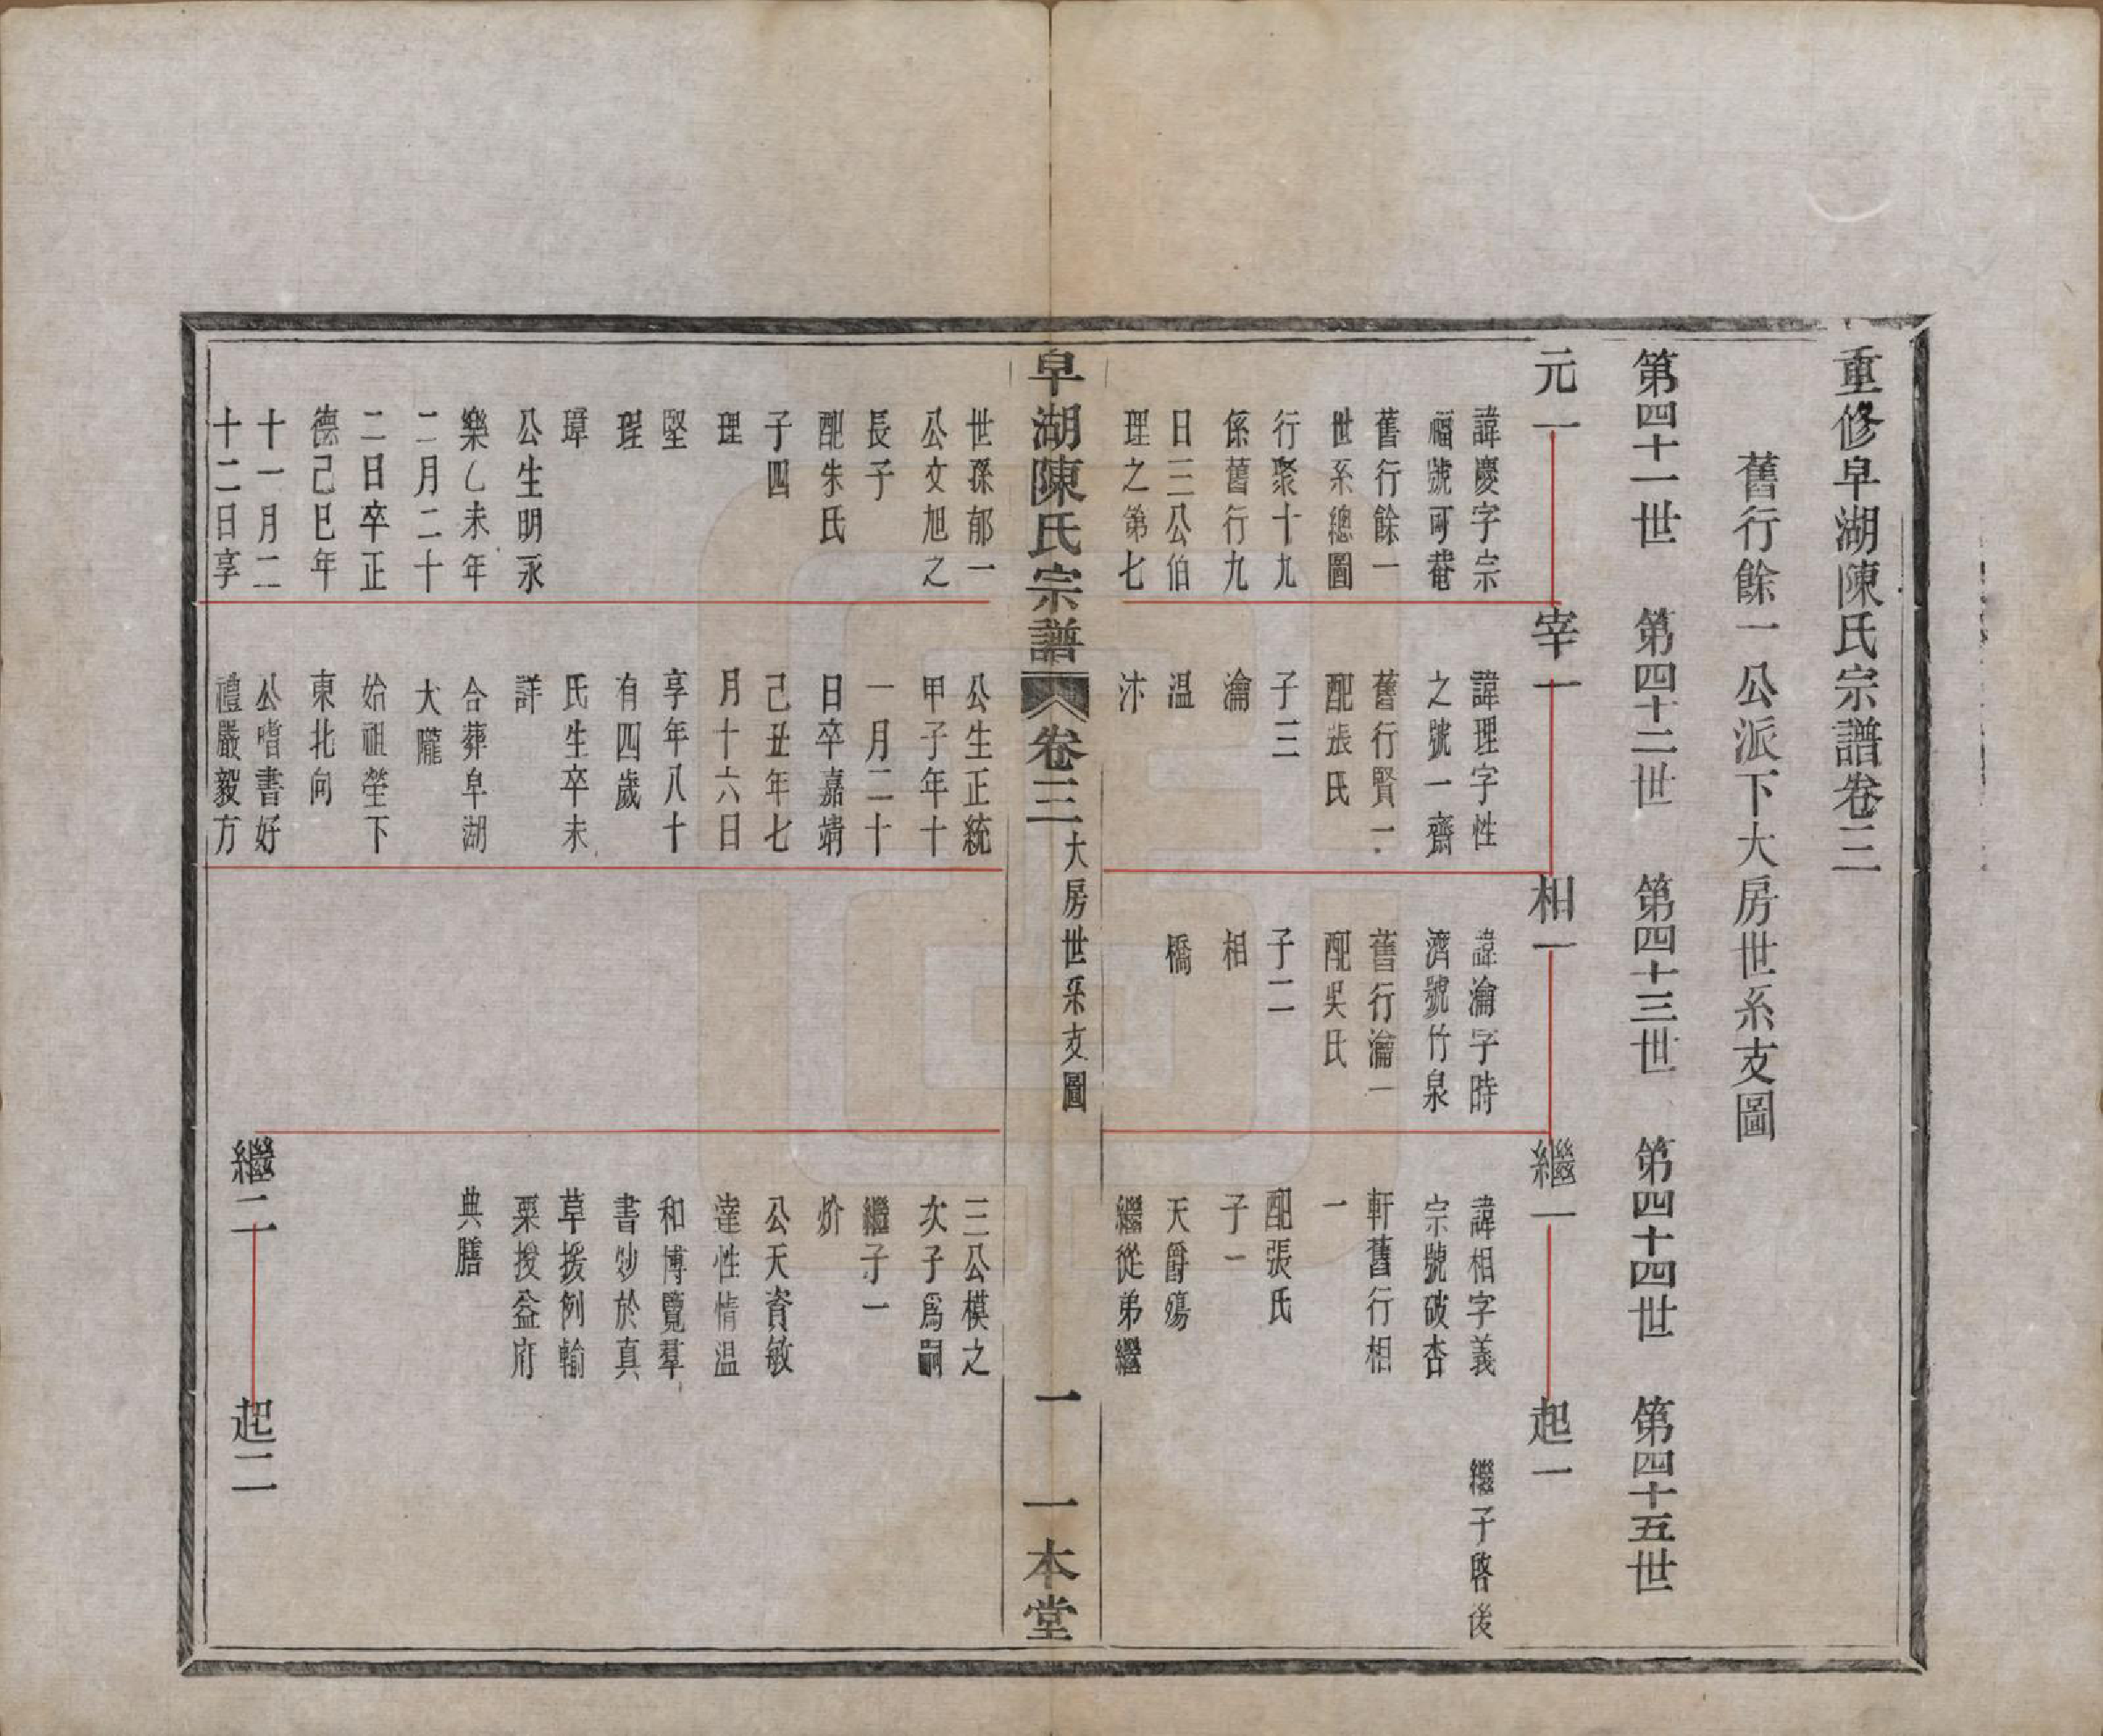 重修阜湖陳氏宗譜卷三
舊行餘一公派下大房世系支圖
第四十一世　第四十二世　第四十三世　第四十四世　第四十五世
元一　宰一　相一　繼一　起一
諱慶字宗
福號可菴
舊行餘一
世系總圖
行聚十九
係舊行九
日三公伯
理之第七
世孫郁一
公文旭之
長子
配朱氏
子四
理
堅
瑆
瑋
公生明永
樂乙未年
二月二十
二日卒正
德己巳年
十一月二
十二日享
諱理字性
之號一齋
舊行賢一
配張氏
子三
瀹
温
沭
公生正統
甲子年十
一月二十
日卒嘉靖
己丑年七
月十六日
享年八十
有四歲
氏生卒未
詳
合葬阜湖
大隴
始祖塋下
東北向
公嗜書好
禮嚴毅方
諱瀹字時
濟號竹泉
舊行瀹一
配吳氏
子二
相
橋
諱相字義
宗號破杏
軒舊行相
一
配張氏
子一
天爵殤
繼從弟繼
三公模之
次子爲嗣
繼子一
炌
公天資敏
達性情温
和博覽羣
書妙於真
草援例輸
粟授益府
典膳
繼子啓後
繼二　起二
阜湖陳氏宗譜　卷三　大房世系支圖　一　一本堂